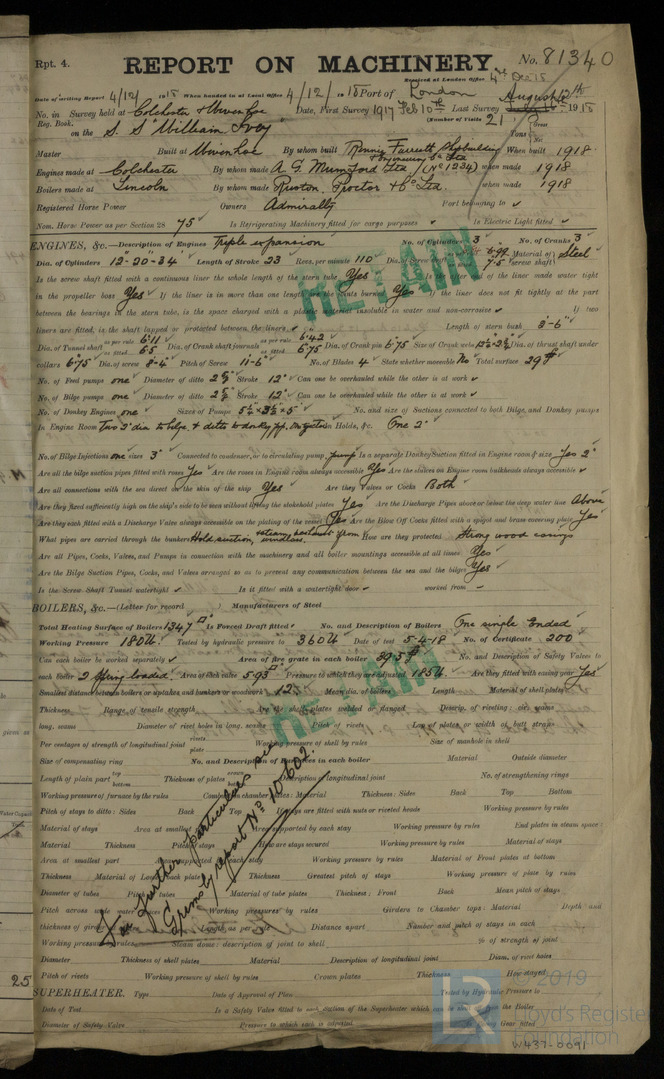 Rpt. 4.
REPORT ON MACHINERY. No. 81340
Received at London Office 4th Dec 18
Date of writing Report 4/12/ 1918 When handed in at Local Office 4/12/ 1918 Port of London
No. in Survey held at Colchester & Wivenhoe Date, First Survey 1917 Feb 10th Last Survey August 12th 1918
Reg. Book. (Number of Visits 21)
on the S.S. William Ivey Tons Gross Net
Master Built at Wivenhoe By whom built Rennie Forrestt Shipbuilding & Engineering Co Ltd When built 1918
Engines made at Colchester By whom made A. G. Mumford Ltd (No 1234) when made 1918
Boilers made at Lincoln By whom made Ruston, Proctor & Co Ltd. when made 1918
Registered Horse Power Owners Admiralty Port belonging to
Nom. Horse Power as per Section 28 75 Is Refrigerating Machinery fitted for cargo purposes Is Electric Light fitted
ENGINES, &c.—Description of Engines Triple expansion No. of Cylinders 3 No. of Cranks 3
Dia. of Cylinders 12-20-34 Length of Stroke 23 Revs. per minute 110 Dia. of Screw shaft 6.99 7.5 Material of screw shaft Steel
Is the screw shaft fitted with a continuous liner the whole length of the stern tube Yes Is the after end of the liner made water tight
in the propeller boss Yes If the liner is in more than one length are the joints burned Yes If the liner does not fit tightly at the part
between the bearings in the stern tube, is the space charged with a plastic material insoluble in water and non-corrosive If two
liners are fitted, is the shaft lapped or protected between the liners Length of stern bush 3'-6"
Dia. of Tunnel shaft as per rule 6.11 as fitted 6.5 Dia. of Crank shaft journals as per rule 6.42 as fitted 6.75 Dia. of Crank pin 6.75 Size of Crank webs Dia. of thrust shaft under
collars 6.75 Dia. of screw 8'-4" Pitch of Screw 11'-6" No. of Blades 4 State whether moveable No Total surface 29
No. of Feed pumps one Diameter of ditto Stroke 12" Can one be overhauled while the other is at work
No. of Bilge pumps one Diameter of ditto Stroke 12" Can one be overhauled while the other is at work
No. of Donkey Engines one Sizes of Pumps 5¼" × 3½" × 5" No. and size of Suctions connected to both Bilge and Donkey pumps
In Engine Room Two 2" dia to bilge & ditto to donkey pp. In Holds, &c. One 2"
No. of Bilge Injections one sizes 3" Connected to condenser, or to circulating pump pump Is a separate Donkey Suction fitted in Engine room & size Yes 2"
Are all the bilge suction pipes fitted with roses Yes Are the roses in Engine room always accessible Yes Are the sluices on Engine room bulkheads always accessible
Are all connections with the sea direct on the skin of the ship Yes Are they Valves or Cocks Both
Are they fixed sufficiently high on the ship's side to be seen without lifting the stokehold plates Yes Are the Discharge Pipes above or below the deep water line Above
Are they each fitted with a Discharge Valve always accessible on the plating of the vessel Yes Are the Blow Off Cocks fitted with a spigot and brass covering plate Yes
What pipes are carried through the bunkers Hold suction, steam & exhaust from windlass How are they protected Strong wood casings
Are all Pipes, Cocks, Valves, and Pumps in connection with the machinery and all boiler mountings accessible at all times Yes
Are the Bilge Suction Pipes, Cocks, and Valves arranged so as to prevent any communication between the sea and the bilges Yes
Is the Screw Shaft Tunnel watertight Is it fitted with a watertight door worked from
BOILERS, &c.—(Letter for record Manufacturers of Steel
Total Heating Surface of Boilers 1347 Is Forced Draft fitted No. and Description of Boilers One single Ended
Working Pressure 180 lb. Tested by hydraulic pressure to 360 lb Date of test 5-4-18 No. of Certificate 200
Can each boiler be worked separately Area of fire grate in each boiler 39.5 No. and Description of Safety Valves to
each boiler 2 Spring loaded Area of each valve 5.93 Pressure to which they are adjusted 185 lb Are they fitted with easing gear Yes
Smallest distance between boilers or uptakes and bunkers or woodwork 12" Mean dia. of boilers Length Material of shell plates
Thickness Range of tensile strength Are the shell plates welded or flanged Descrip. of riveting: cir. seams
long. seams Diameter of rivet holes in long. seams Pitch of rivets Lap of plates or width of butt straps
Per centages of strength of longitudinal joint rivets plate Working pressure of shell by rules Size of manhole in shell
Size of compensating ring No. and Description of Furnaces in each boiler Material Outside diameter
Length of plain part top bottom Thickness of plates crown bottom Description of longitudinal joint No. of strengthening rings
Working pressure of furnace by the rules Combustion chamber plates: Material Thickness: Sides Back Top Bottom
Pitch of stays to ditto: Sides Back Top If stays are fitted with nuts or riveted heads Working pressure by rules
Material of stays Area at smallest part Area supported by each stay Working pressure by rules End plates in steam space:
Material Thickness Pitch of stays How are stays secured Working pressure by rules Material of stays
Area at smallest part Area supported by each stay Working pressure by rules Material of Front plates at bottom
Thickness Material of Lower back plate Thickness Greatest pitch of stays Working pressure of plate by rules
Diameter of tubes Pitch of tubes Material of tube plates Thickness: Front Back Mean pitch of stays
Pitch across wide water spaces Working pressures by rules Girders to Chamber tops: Material Depth and
thickness of girder at centre Length as per rule Distance apart Number and pitch of stays in each
Working pressure by rules Steam dome: description of joint to shell % of strength of joint
Diameter Thickness of shell plates Material Description of longitudinal joint Diam. of rivet holes
Pitch of rivets Working pressure of shell by rules Crown plates Thickness How stayed
SUPERHEATER. Type Date of Approval of Plan Tested by Hydraulic Pressure to
Date of Test Is a Safety Valve fitted to each section of the Superheater which can be shut off from the Boiler
Diameter of Safety Valve Pressure to which each is adjusted Is Easing Gear fitted
For further particulars see
Grimsby report No. 10602.
RETAIN
RETAIN
25
© 2019
LR
Lloyd's Register
Foundation
W437-0091